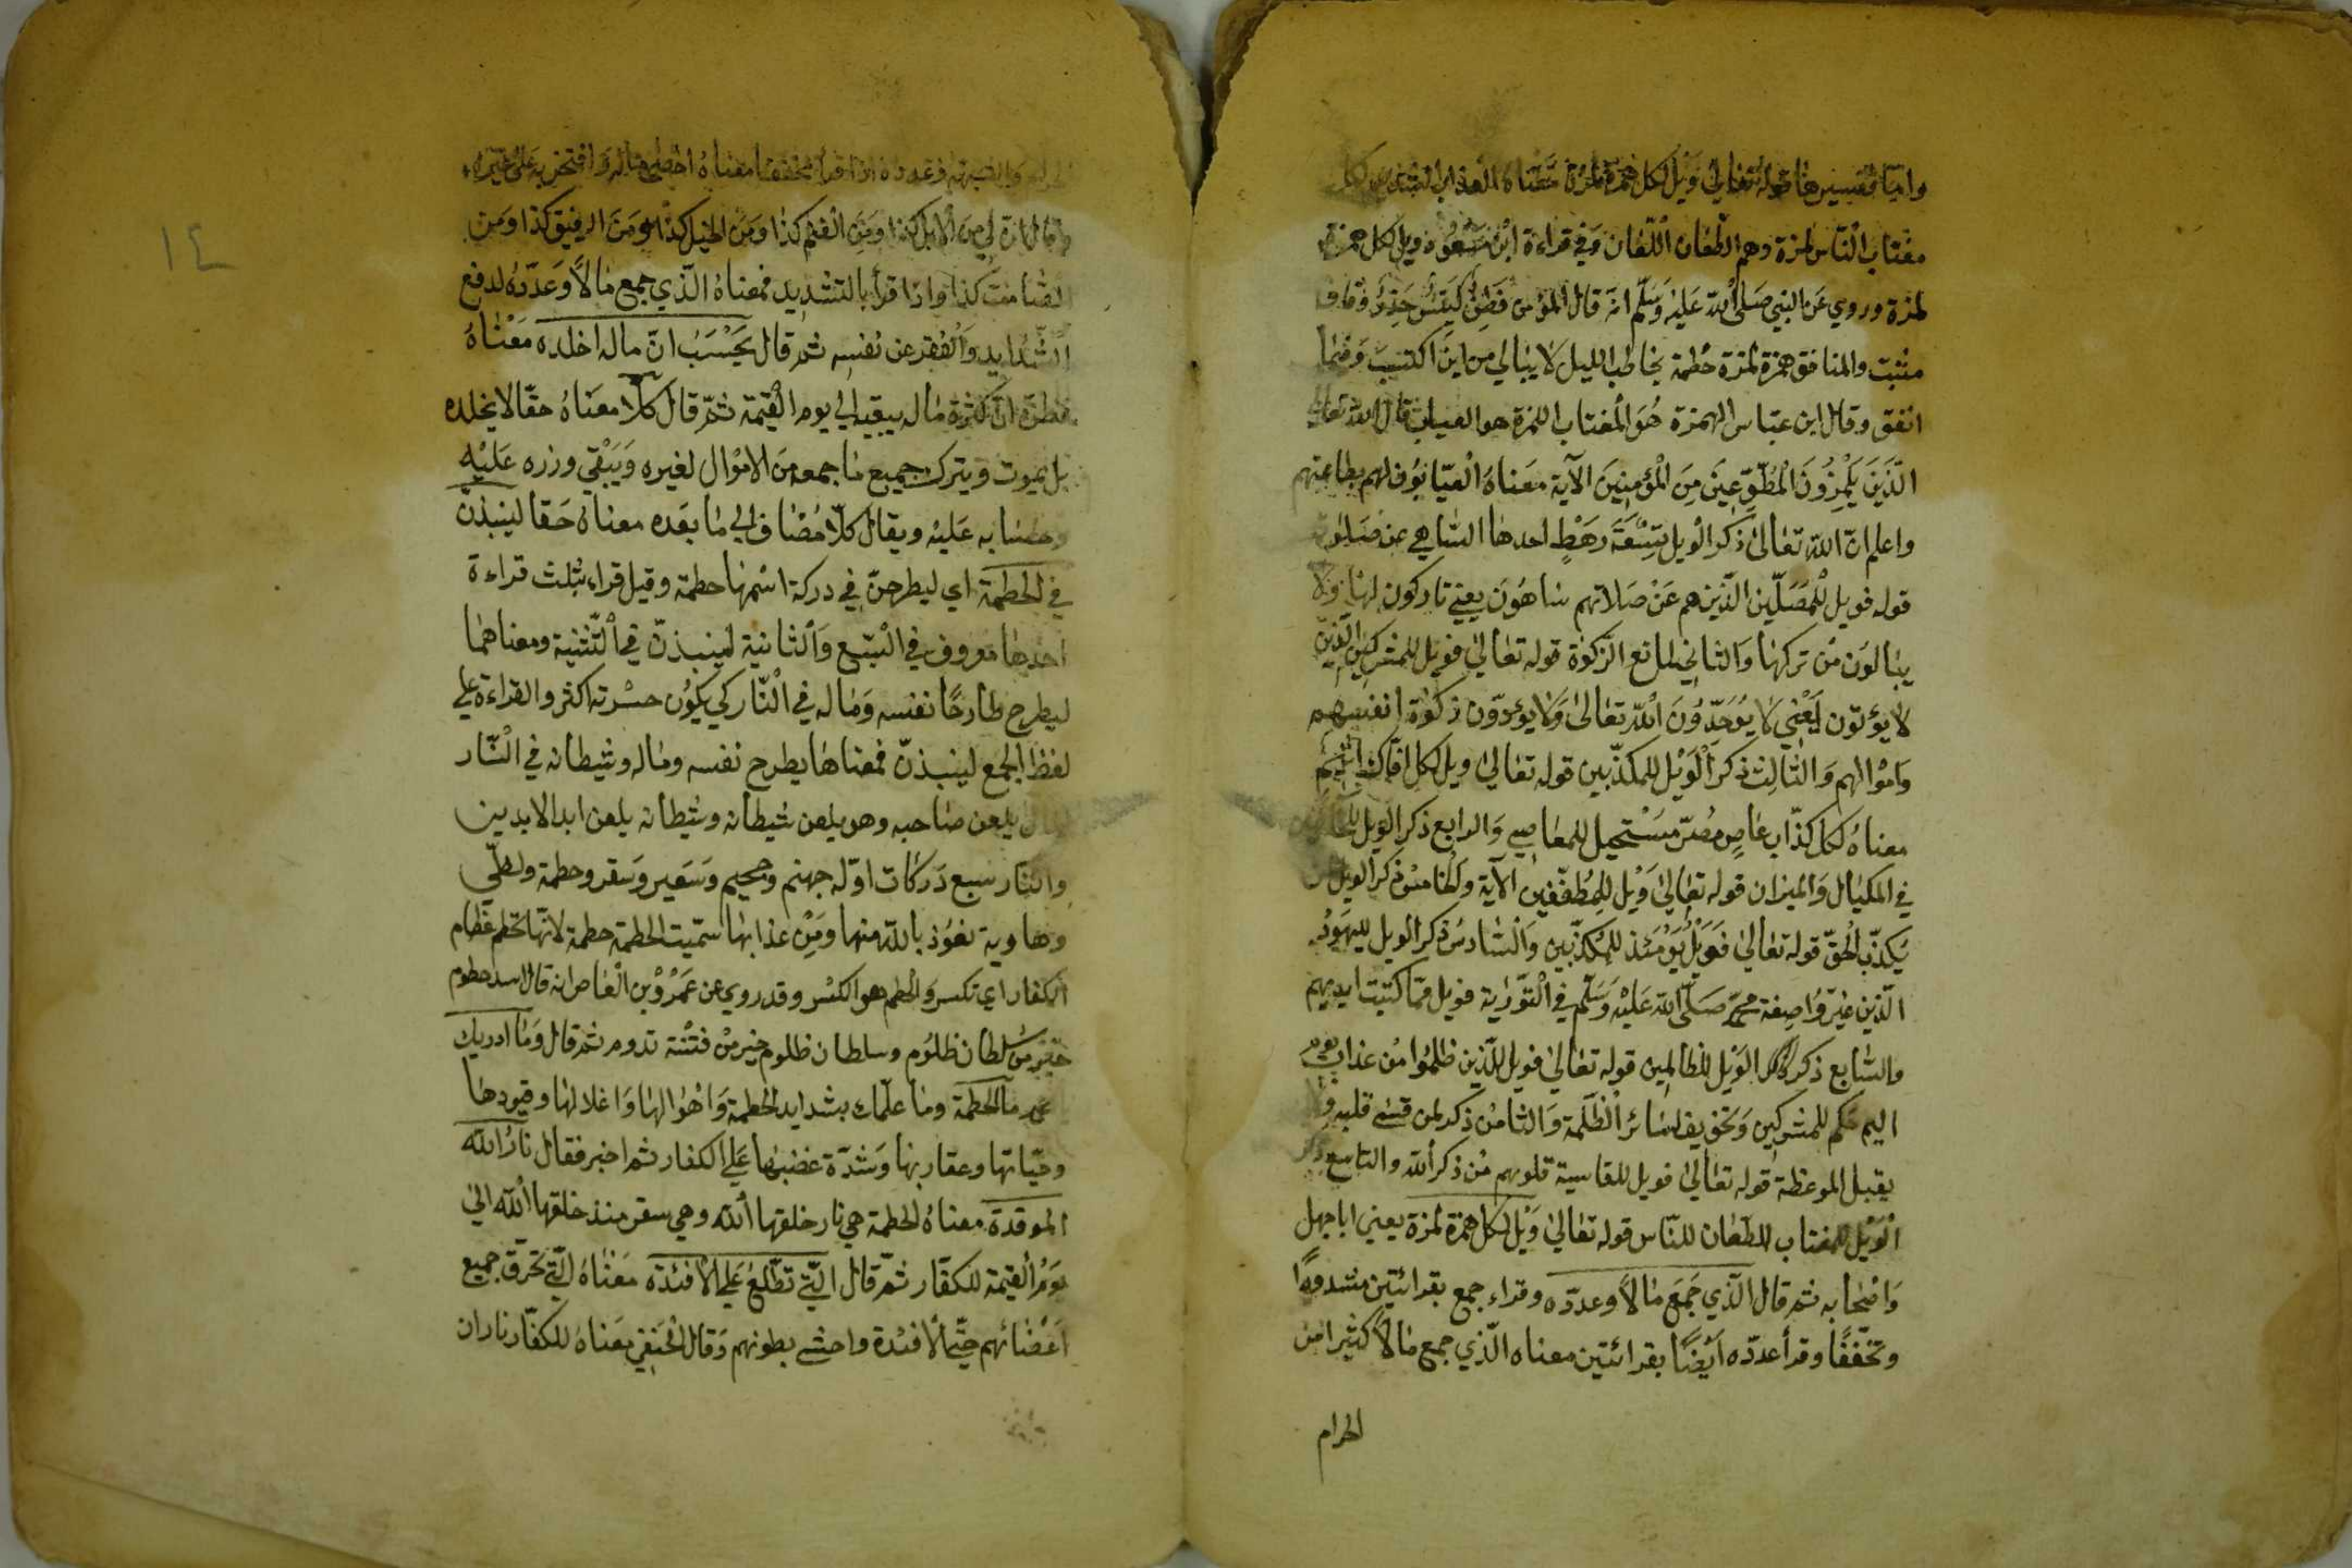 وامّا تفسيرها قوله تعالىٰ وَيْل لكل همزة لمزة معناه العذاب الشديد لكل
مغتاب النّاس لمزة وهم الطّعان اللّعان وَفي قراءة ابن مسعُود ويل لكل همزة
لمزة وروي عَن النبي صَلى الله عَليْه وَسَلّم انه قال المؤمن فَطِنٌ كَيّسٌ حَذِرٌ وقاف
مثبت والمنافق همزة لمزة حُطمة بخاطب الليل لا يبالي من اين اكتسبَ وَفيما
انفق وقال ابن عبّاس الهمزة هُوَ المغتاب اللمزة هو العياب قال الله تعالى
الّذينَ يَلْمِزُونَ الْمُطّوِّعِينَ مِنَ الْمُؤمِنينَ الآية معَناهُ العيّابوُن لهم بطاعتهم
واعلم انّ اللّه تعَالىٰ ذكر الويل تِسْعَةَ رَهَطٍ احدها السّاهي عن صَلوته
قوله فويل للْمُصَلّين الّذين هم عَنْ صَلاتهم ساهُونَ يعني تاركون لها وَلا
يبالوَن مُن تركهَا وَالثاني لمانع الزّكوٰة قوله تعَالىٰ فويل للمشركين الّذين
لا يؤتون يَعْني لا يُوَحّدُونَ اللّه تعَالىٰ وَلا يؤدّون زكوٰة انفسهم
وَاموَالهم وَالثّالِث ذكر الْوَيْل للمكذّبين قوله تعَالىٰ ويل لكل افّاك اثيم
معناهُ لكل كذّاب عَاصٍ مُصرّ مسَتْحيل للمعَاصي وَالرابع ذكر الوَيل
في المكيَال وَالميزان قوله تعَالىٰ وَيْل لِلْمُطَفّفين الآية وَالخامسُ ذكر الويل لمن
يَكذّب الْحَقّ قوله تعَالىٰ فَوَيْل يَوْمَئذ للمُكذّبين وَالسّادسُ ذكر الويل لليَهوُد
الّذين غيّرُوا صِفة محمّد صَلّى اللّه عَليْهْ وَسَلّم في الْتَوّراية فويل ممّا كتبت ايديهم
والسّابع ذكر الوَيْل للظّالمين قوله تعَالىٰ فويل للّذين ظلمُوا مُن عذاب يوم
اليم حكم للمشركين وَتخويف لسَائر الظّلمَة وَالثّامنُ ذكر لمن قسَي قلبه ولا
يقبل الموعظة قوله تعَالىٰ فويل للقاسية قلوبهم مُن ذكر اللّه والتاسع ذكر
الْوَيْل للمغتاب للطّعان للنّاس قوله تعَالىٰ وَيْل لكل همزة لمزة يعني اباجهل
وَاصْحابه ثم قال الّذي جَمَعَ مالًا وعددّه وقراء جمع بقرائتين مشددًا
وتخَففًا وقرأ عددّه ايَضًا بقرائتين معناه الّذي جمع مالًا كثيرا من
الحرام
١٤
وعدده اذا قرأ مخففا معناهُ احصىٰ ماله وَافتخر به عَلىٰ غيره
وقال ان لي من الابل كذا ومَن الغنم كذا ومَن الخيل كذا ومَن الرقيق كذا ومَن
الصّامتُ كذا واذا قرأ بالتشديد فمعناهُ الّذي جمع مَالًا وَعَدّدَهُ لدفع
الشّدايد وَالْفقر عن نفسِه ثم قال يَحْسَبُ انّ ماله اخلده مَعْناهُ
يظن انّ كثرة ماله يبقيه الي يوم القيٰمة ثمّ قال كلّا معنَاهُ حقّا لا يخلده
بل يموت ويترك جميع مَا جمعه مَن الاموْال لغيره وَيَبْقي وزره عَليْه
وحسَابه عَليْه ويقال كلّا مُضَاف الي مَا بعَده معناهُ حَقا لينبذنّ
في الحطمَة اي ليطرحنّ في دركة اسْمها حطمة وقيل قراء بثلث قراءة
احدها معروف في التبّع وَالثانية لينبذنّ في الْتّثنية ومعناهمَا
ليطرح طارحًا نفسه وَمَاله في النّار كي يكوُن حسْرته اكثر والقراءة علي
لفظ الجمع لينبذنّ فمعناها يطرح نفسه ومَاله وشيطانه في الْنّار
يلعن صَاحبه وهو يلعن شيطانه وشيطانه يلعن ابد الابدين
والنّار سبع دَرَكات اوّله جهنم وجحيم وسَعَير وَسَقر وحطمة ولظّي
وهاوية نعوُذ باللّه منها ومَن عذابها سمّيت الحطمة حطمة لانّها تحطم عظام
الكفار اي تكسر وَالحطم هو الكسْر وقد روي عن عَمْرُوبْن العَاص انه قال اسد حطوم
خيْر من سُلطان ظلوُم وسلطان ظلوم خير مُن فتْنة تدوم ثم قال وَمَا ادريك
مَا الحطمَة ومَا علّمك بشدايد الحطمة وَاهْوَالهَا وَاغلالهَا وقيودهَا
وحيّاتها وعقاربها وَشدّة غضبهَا عَلي الكفار ثم اخبر فقال نارُ اللّه
الموقدة معناهُ الحطمة هي نار خلقها اللّه وهي سقر منذ خلقها اللّه الي
يوَمْ القيٰمة للكفّار ثمّ قال الّتي تطّلعُ عَلي الْافئدة مَعْناهُ الّتي تحَرق جميع
اعَضْائهم حتّي الْافئدة واحشے بطونهم وَقال الْحَنَفي معَناهُ للكفّار ناران